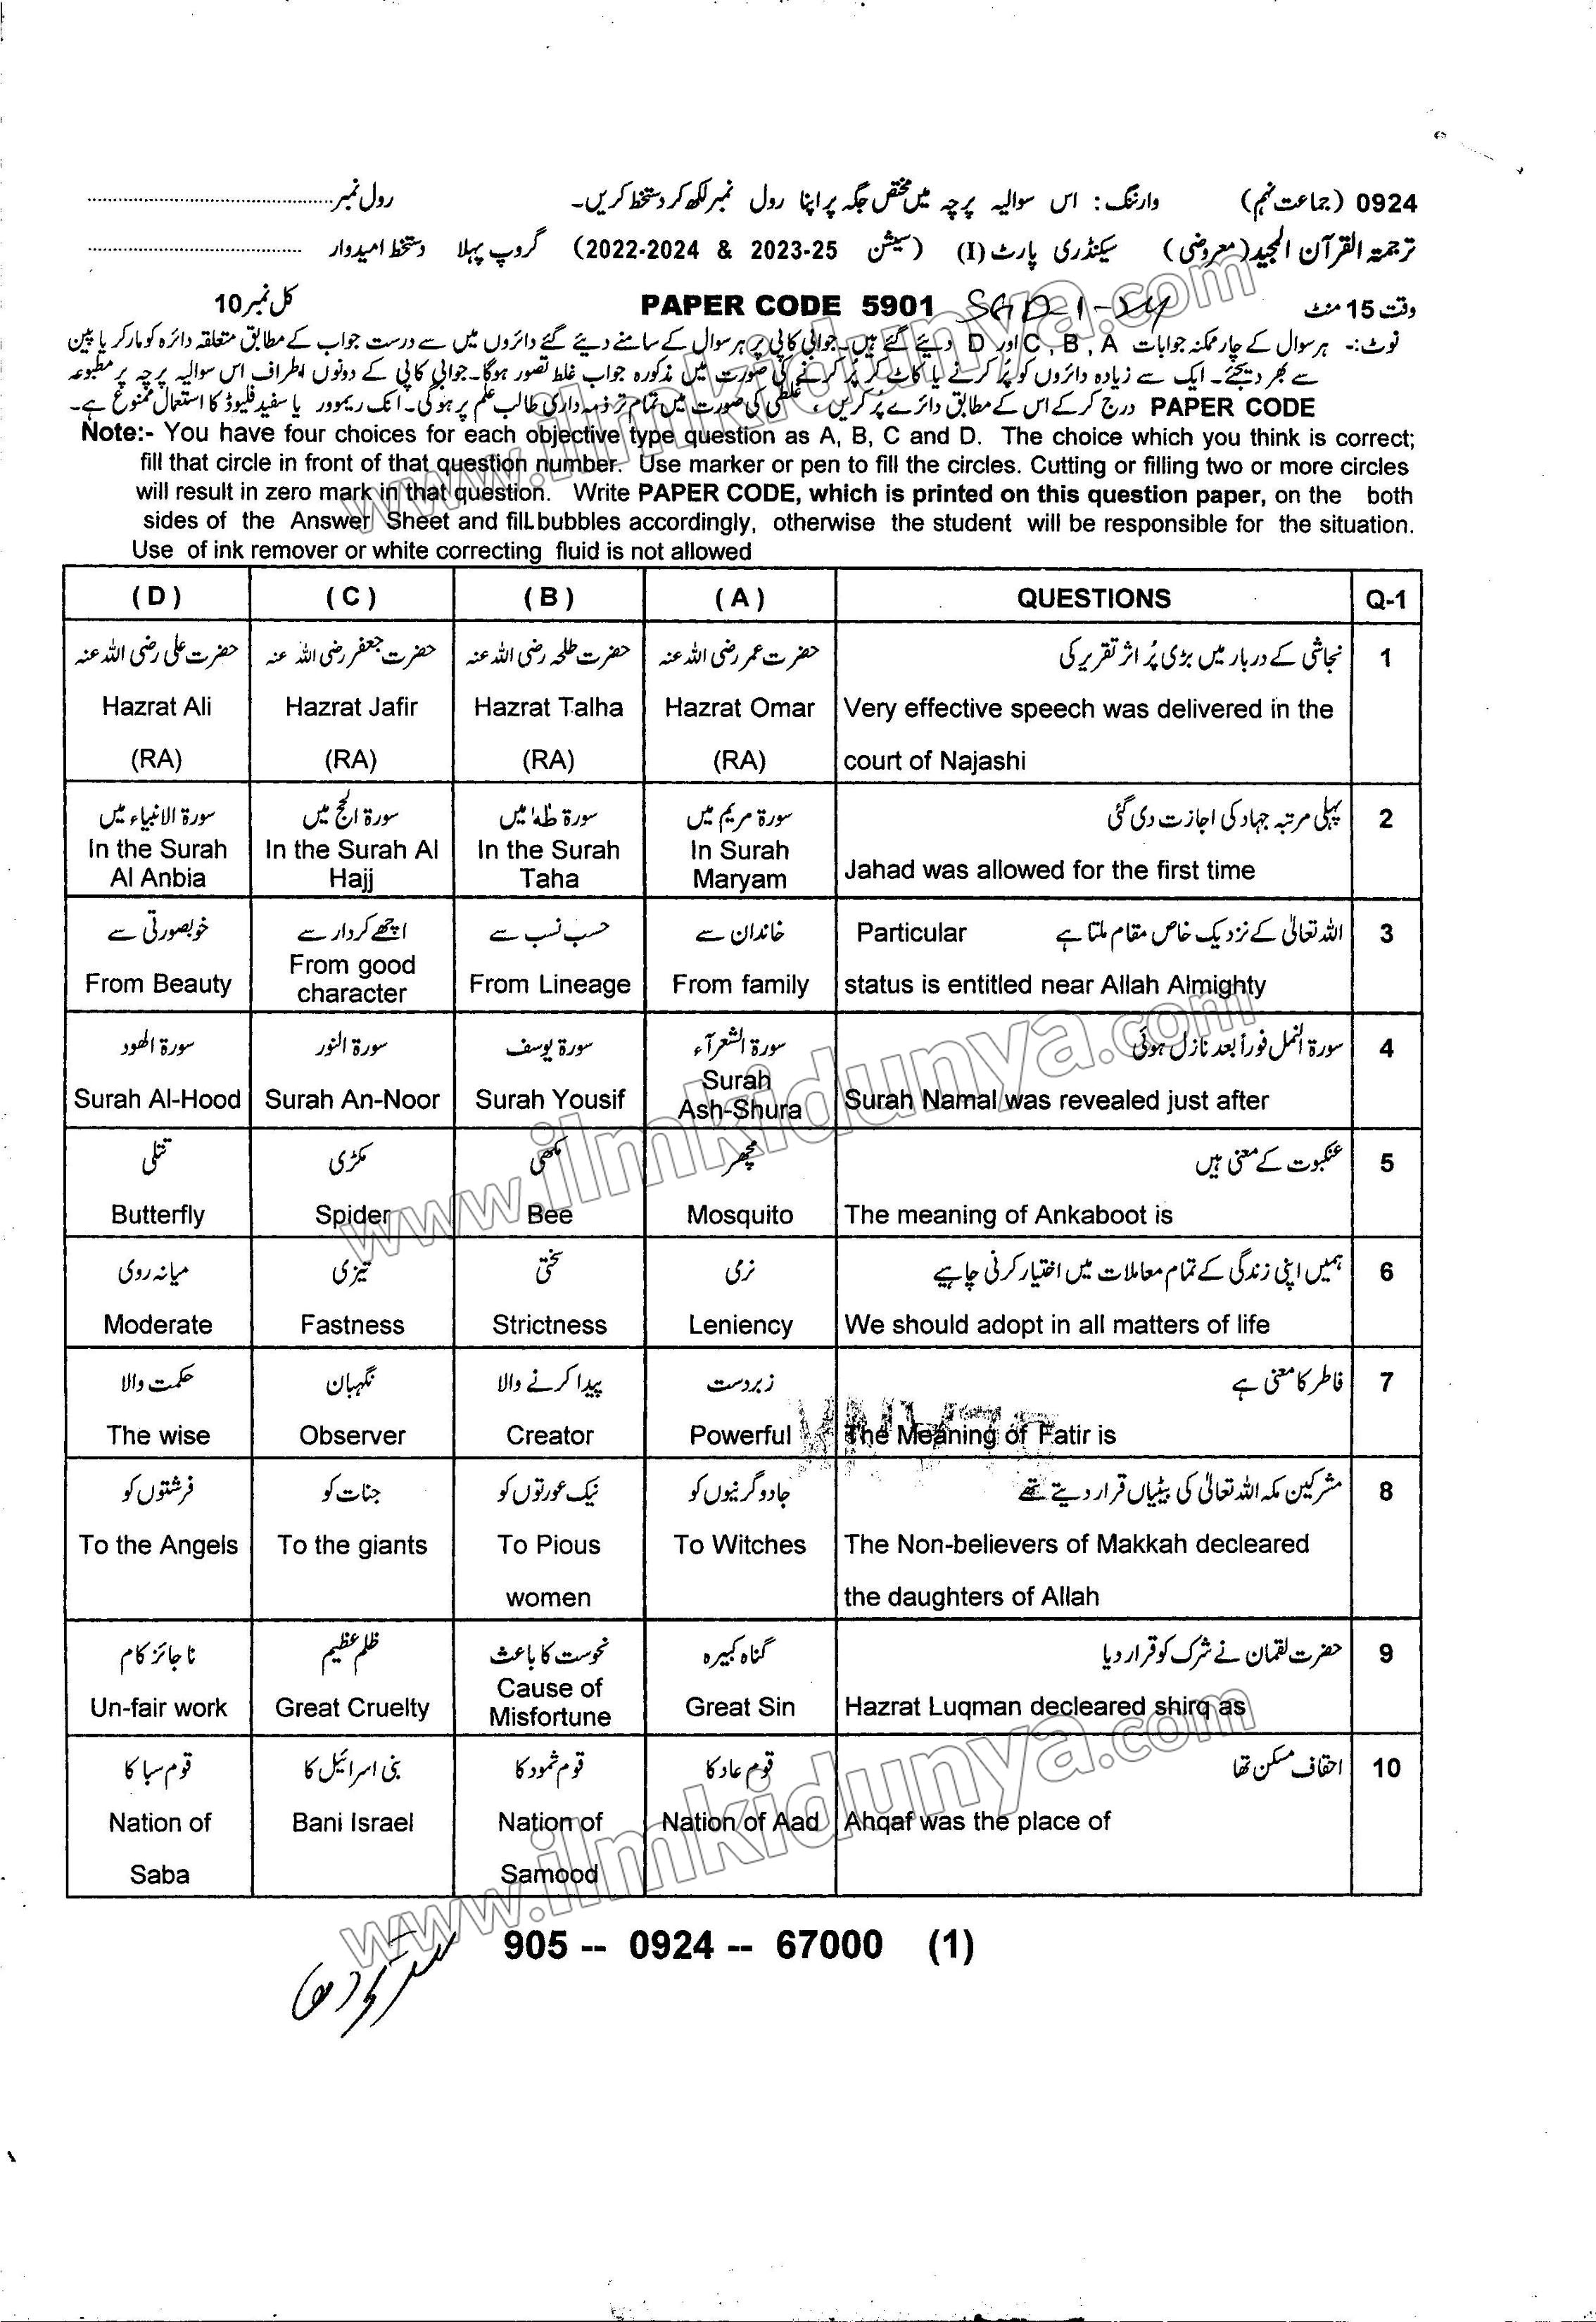 0924 (جماعت نہم) وارننگ: اس سوالیہ پرچہ میں مختص جگہ پر اپنا رول نمبر لکھ کر دستخط کریں۔ رول نمبر
ترجمۃ القرآن المجید (معروضی) سیکنڈری پارٹ (I) (سیشن 2023-25 & 2022-2024) گروپ پہلا دستخط امیدوار
وقت 15 منٹ PAPER CODE 5901 SGD-1-24 کل نمبر 10
نوٹ:- ہر سوال کے چار ممکنہ جوابات A , B , C اور D دیئے گئے ہیں۔ جوابی کاپی پر ہر سوال کے سامنے دیئے گئے دائروں میں سے درست جواب کے مطابق متعلقہ دائرہ کو مارکر یا پین
سے بھر دیجئے۔ ایک سے زیادہ دائروں کو پُر کرنے یا کاٹ کر پُر کرنے کی صورت میں مذکورہ جواب غلط تصور ہوگا۔ جوابی کاپی کے دونوں اطراف اس سوالیہ پرچہ پر مطبوعہ
PAPER CODE درج کر کے اس کے مطابق دائرے پُر کریں، غلطی کی صورت میں تمام تر ذمہ داری طالب علم پر ہوگی۔ انک ریموور یا سفید فلیوڈ کا استعمال ممنوع ہے۔
Note:- You have four choices for each objective type question as A, B, C and D. The choice which you think is correct;
fill that circle in front of that question number. Use marker or pen to fill the circles. Cutting or filling two or more circles
will result in zero mark in that question. Write PAPER CODE, which is printed on this question paper, on the both
sides of the Answer Sheet and fill bubbles accordingly, otherwise the student will be responsible for the situation.
Use of ink remover or white correcting fluid is not allowed
(D) (C) (B) (A) QUESTIONS Q-1
1 نجاشی کے دربار میں بڑی پُر اثر تقریر کی حضرت عمر رضی اللہ عنہ حضرت طلحہ رضی اللہ عنہ حضرت جعفر رضی اللہ عنہ حضرت علی رضی اللہ عنہ
Hazrat Ali Hazrat Jafir Hazrat Talha Hazrat Omar Very effective speech was delivered in the
(RA) (RA) (RA) (RA) court of Najashi
2 پہلی مرتبہ جہاد کی اجازت دی گئی سورۃ مریم میں سورۃ طٰہٰ میں سورۃ الحج میں سورۃ الانبیاء میں
In the Surah In the Surah Al In the Surah In Surah Jahad was allowed for the first time
Al Anbia Hajj Taha Maryam
3 اللہ تعالیٰ کے نزدیک خاص مقام ملتا ہے Particular خاندان سے حسب نسب سے اچھے کردار سے خوبصورتی سے
From Beauty From good character From Lineage From family status is entitled near Allah Almighty
4 سورۃ النمل فوراً بعد نازل ہوئی سورۃ الشعرآء سورۃ یوسف سورۃ النور سورۃ الھود
Surah Al-Hood Surah An-Noor Surah Yousif Surah Ash-Shura Surah Namal was revealed just after
5 عنکبوت کے معنی ہیں مچھر مکھی مکڑی تتلی
Butterfly Spider Bee Mosquito The meaning of Ankaboot is
6 ہمیں اپنی زندگی کے تمام معاملات میں اختیار کرنی چاہیے نرمی سختی تیزی میانہ روی
Moderate Fastness Strictness Leniency We should adopt in all matters of life
7 فاطر کا معنی ہے زبردست پیدا کرنے والا نگہبان حکمت والا
The wise Observer Creator Powerful The Meaning of Fatir is
8 مشرکین مکہ اللہ تعالیٰ کی بیٹیاں قرار دیتے تھے جادوگرنیوں کو نیک عورتوں کو جنات کو فرشتوں کو
To the Angels To the giants To Pious To Witches The Non-believers of Makkah decleared
women the daughters of Allah
9 حضرت لقمان نے شرک کو قرار دیا گناہ کبیرہ نحوست کا باعث ظلم عظیم ناجائز کام
Un-fair work Great Cruelty Cause of Misfortune Great Sin Hazrat Luqman decleared shirq as
10 احقاف مسکن تھا قوم عاد کا قوم ثمود کا بنی اسرائیل کا قوم سبا کا
Nation of Bani Israel Nation of Nation of Aad Ahqaf was the place of
Saba Samood
905 -- 0924 -- 67000 (1)
www.ilmkidunya.com
www.ilmkidunya.com
www.ilmkidunya.com